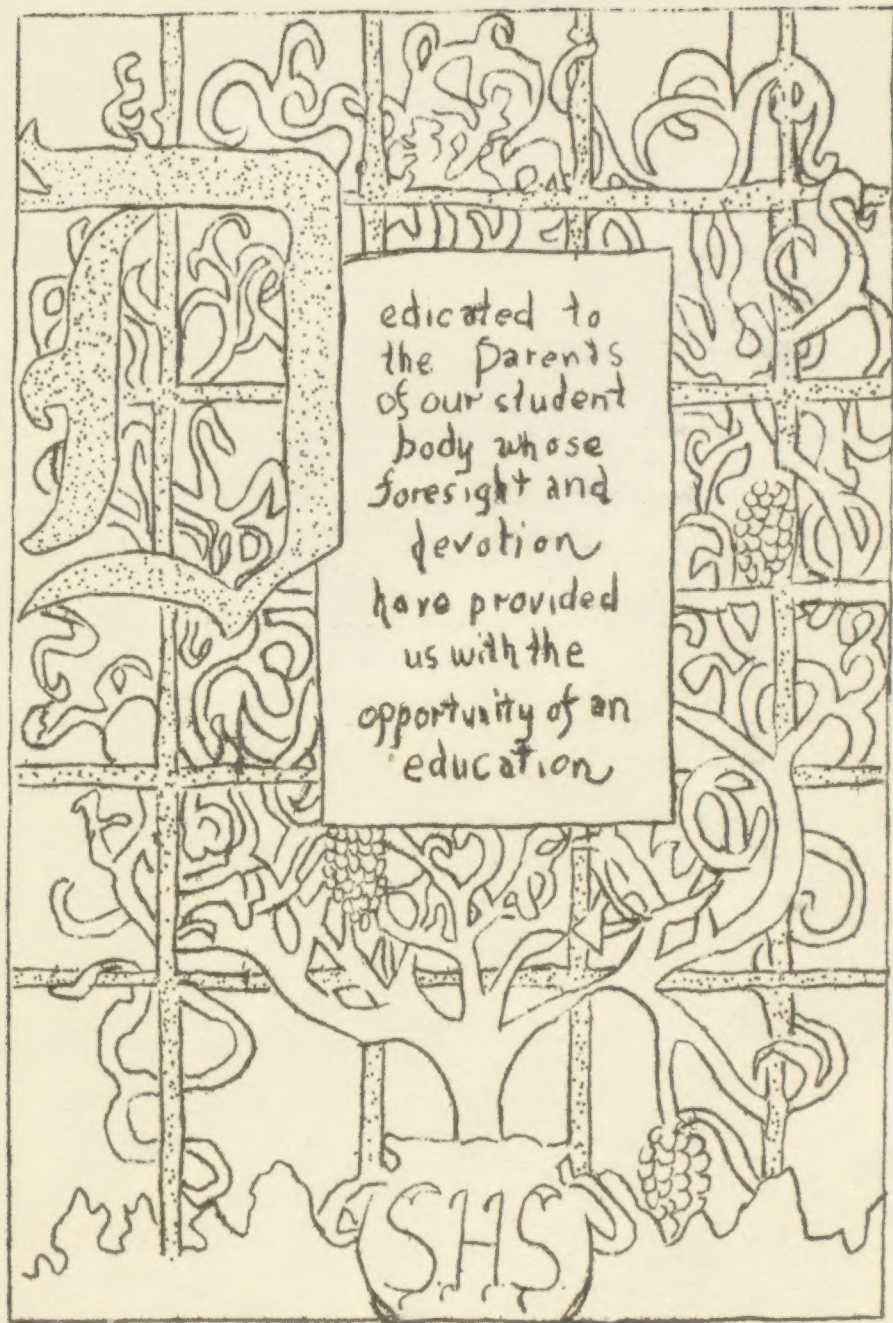 Dedicated to
the Parents
of our student
body whose
foresight and
devotion
have provided
us with the
opportunity of an
education
SHS